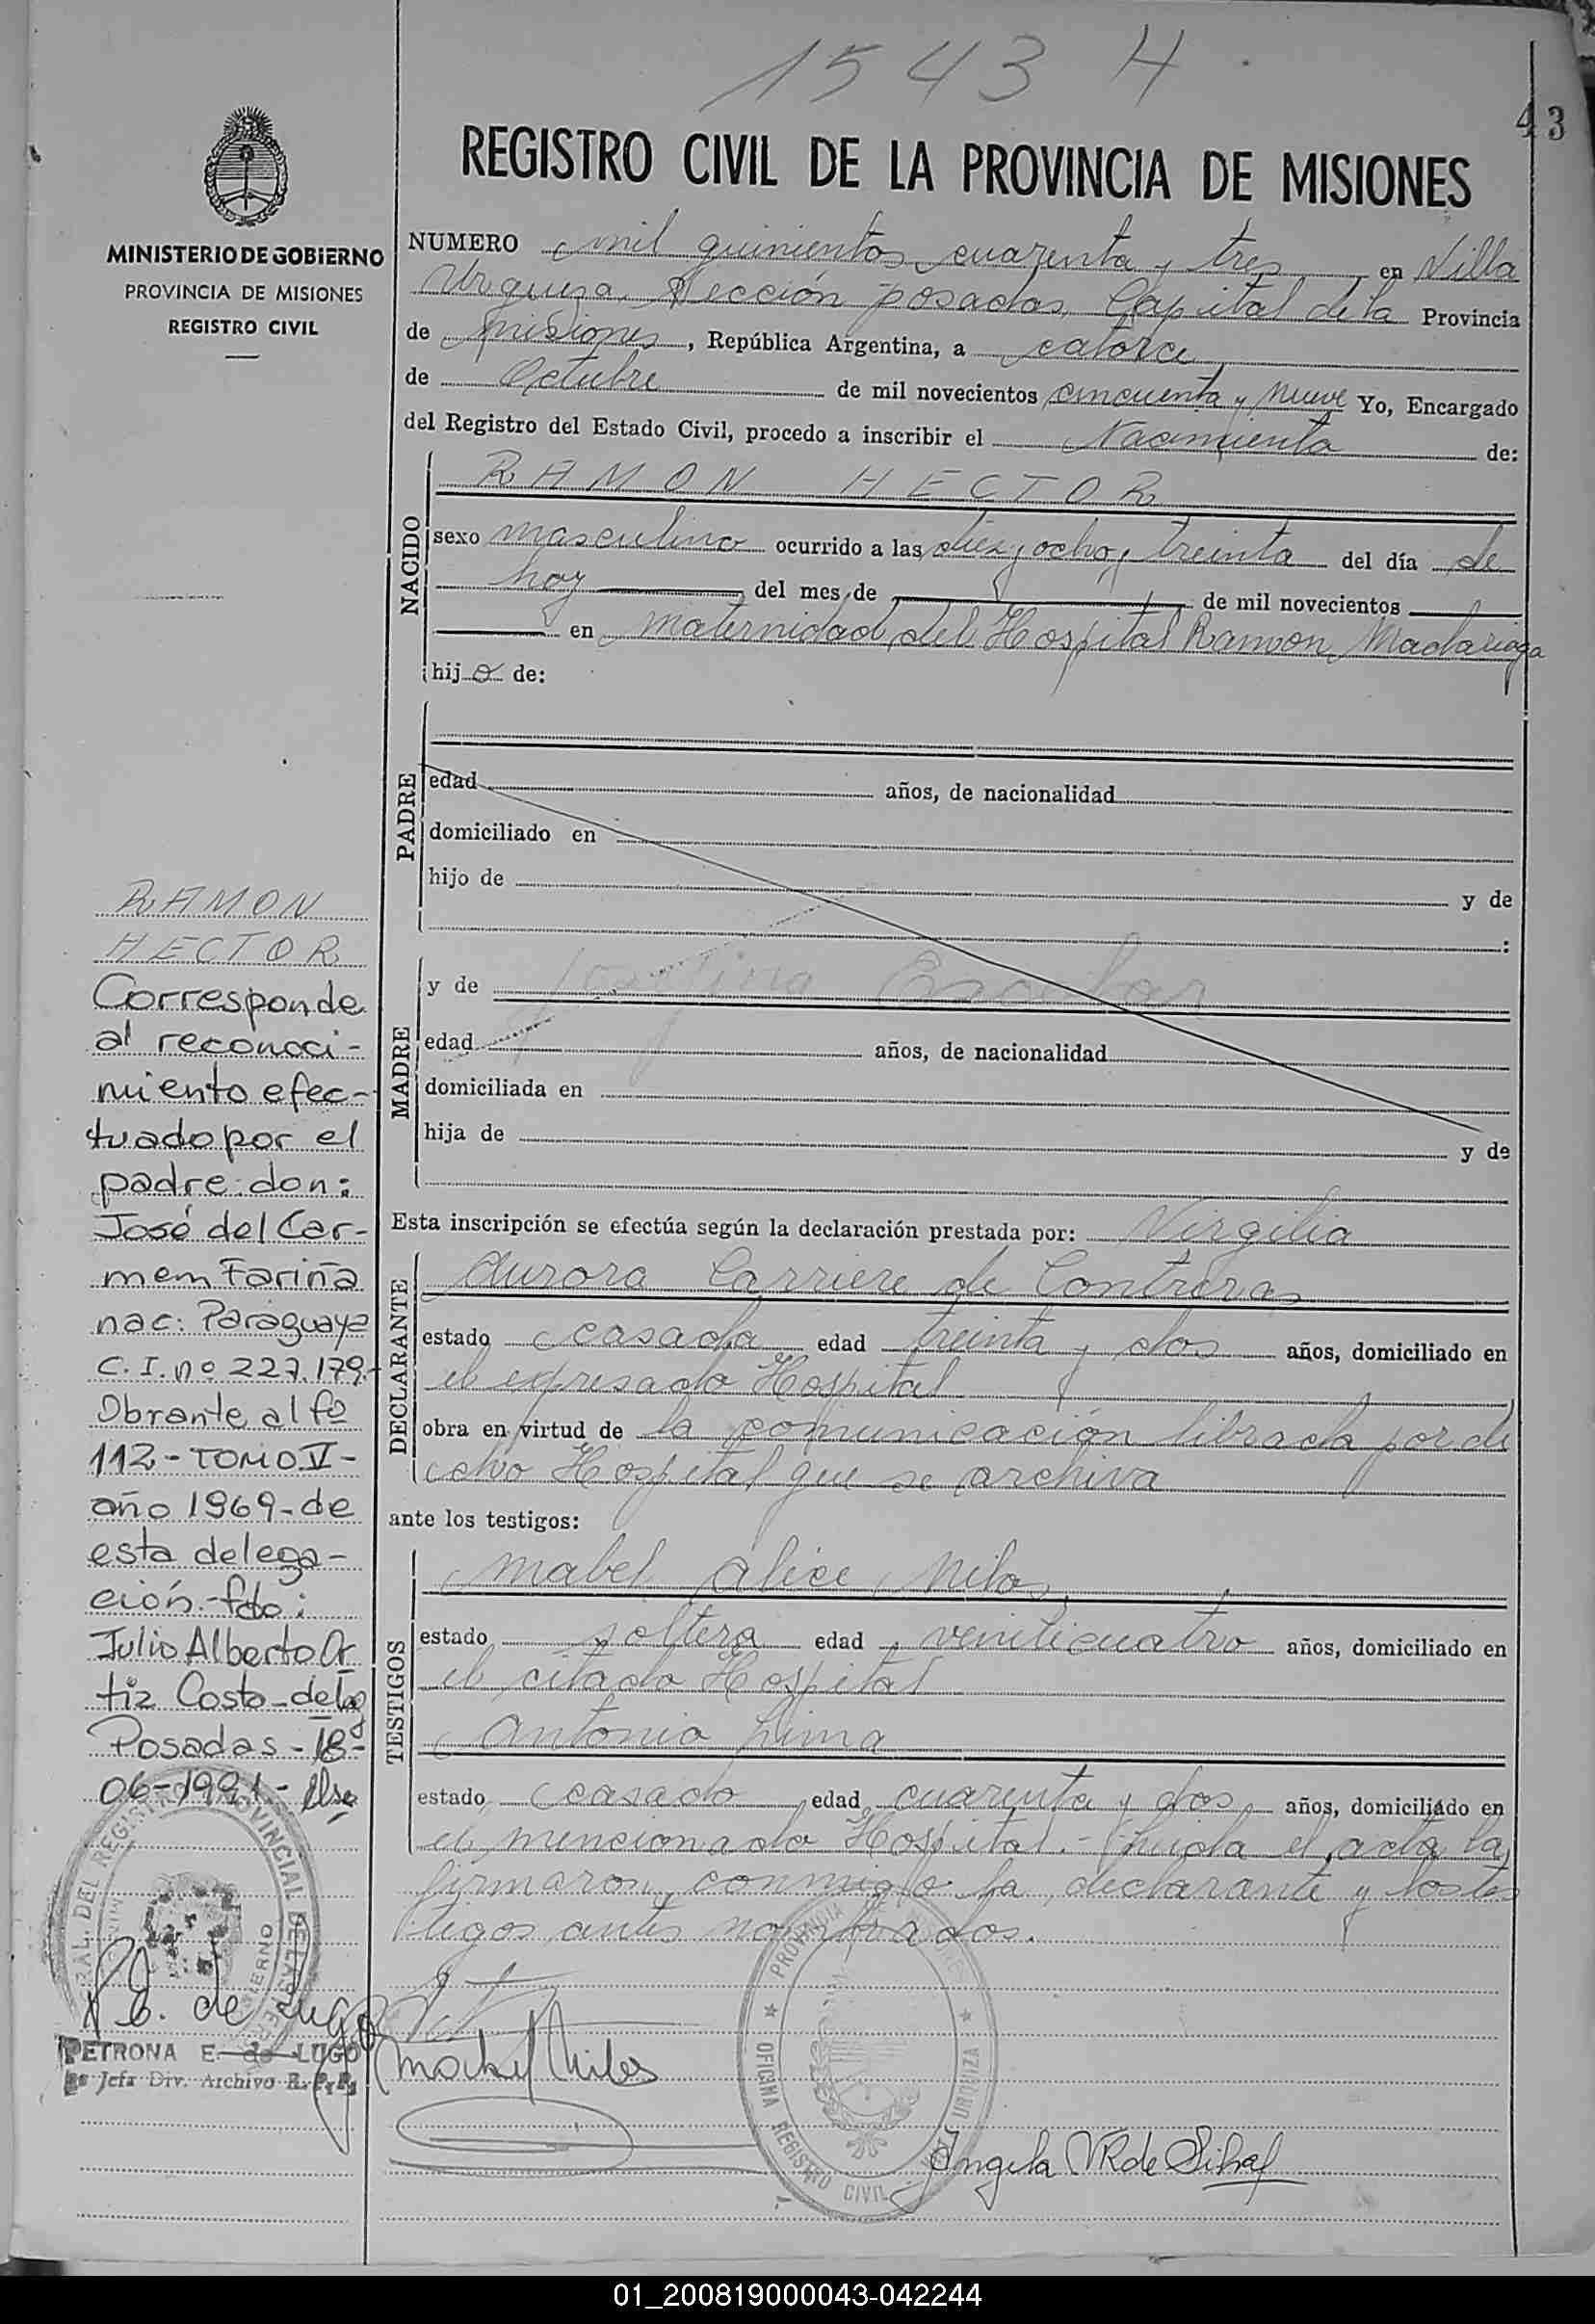 1543 H
43
REGISTRO CIVIL DE LA PROVINCIA DE MISIONES
MINISTERIO DE GOBIERNO
PROVINCIA DE MISIONES
REGISTRO CIVIL
NUMERO mil quinientos cuarenta y tres en Villa
Urquiza, Sección posadas, Capital de la Provincia
de misiones, República Argentina, a catorce
de Octubre de mil novecientos cincuenta y nueve Yo, Encargado
del Registro del Estado Civil, procedo a inscribir el Nacimiento de:
NACIDO
RAMON HECTOR
sexo masculino ocurrido a las diez y ocho y treinta del día de
hoy del mes de de mil novecientos
en maternidad del Hospital Ramon Madariaga
hijo de:
PADRE
edad años, de nacionalidad
domiciliado en
hijo de y de
:
MADRE
y de Escobar
edad años, de nacionalidad
domiciliada en
hija de y de
Esta inscripción se efectúa según la declaración prestada por: Virgilia
DECLARANTE
Aurora Carriere de Contreras
estado casada edad treinta y dos años, domiciliado en
el expresado Hospital
obra en virtud de la comunicación librada por di
cho Hospital que se archiva
ante los testigos:
TESTIGOS
Mabel Alice Milos
estado soltera edad veinticuatro años, domiciliado en
el citado Hospital
Antonio Lima
estado casado edad cuarenta y dos años, domiciliado en
el mencionado Hospital.- Leida el acta la
firmaron conmigo la declarante y los tes
tigos antes nombrados.
RAMON
HECTOR
Corresponde
al reconoci-
miento efec-
tuado por el
padre don:
José del Car-
mem Fariña
nac: Paraguaya
C.I. nº 227.179-
Obrante al fº
112-TOMO V-
año 1969-de
esta delega-
ción-fdo:
Julio Alberto Or
tiz Costa-deleg
Posadas-18-
06-1991-
P.E. de Lugo
PETRONA E. de LUGO
Jefa Div. Archivo R.P.P.
PROVINCIA
OFICINA REGISTRO CIVIL
URQUIZA
Angela
01_200819000043-042244